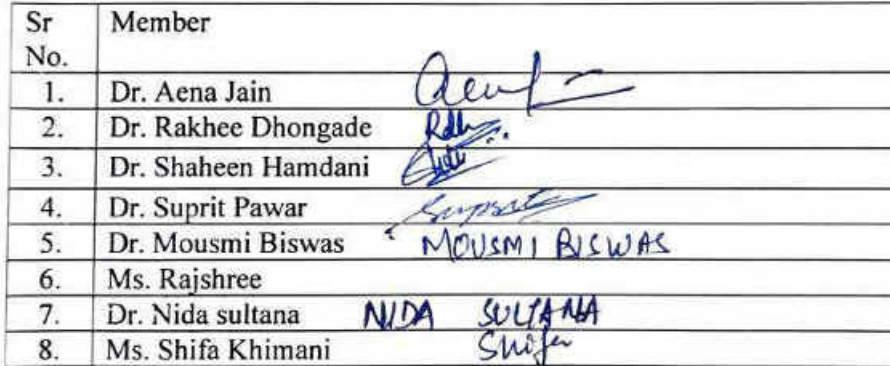 Sr No. Member
1. Dr. Aena Jain
2. Dr. Rakhee Dhongade
3. Dr. Shaheen Hamdani
4. Dr. Suprit Pawar Suprit
5. Dr. Mousmi Biswas MOUSMI BISWAS
6. Ms. Rajshree
7. Dr. Nida sultana NIDA SULTANA
8. Ms. Shifa Khimani Shifa